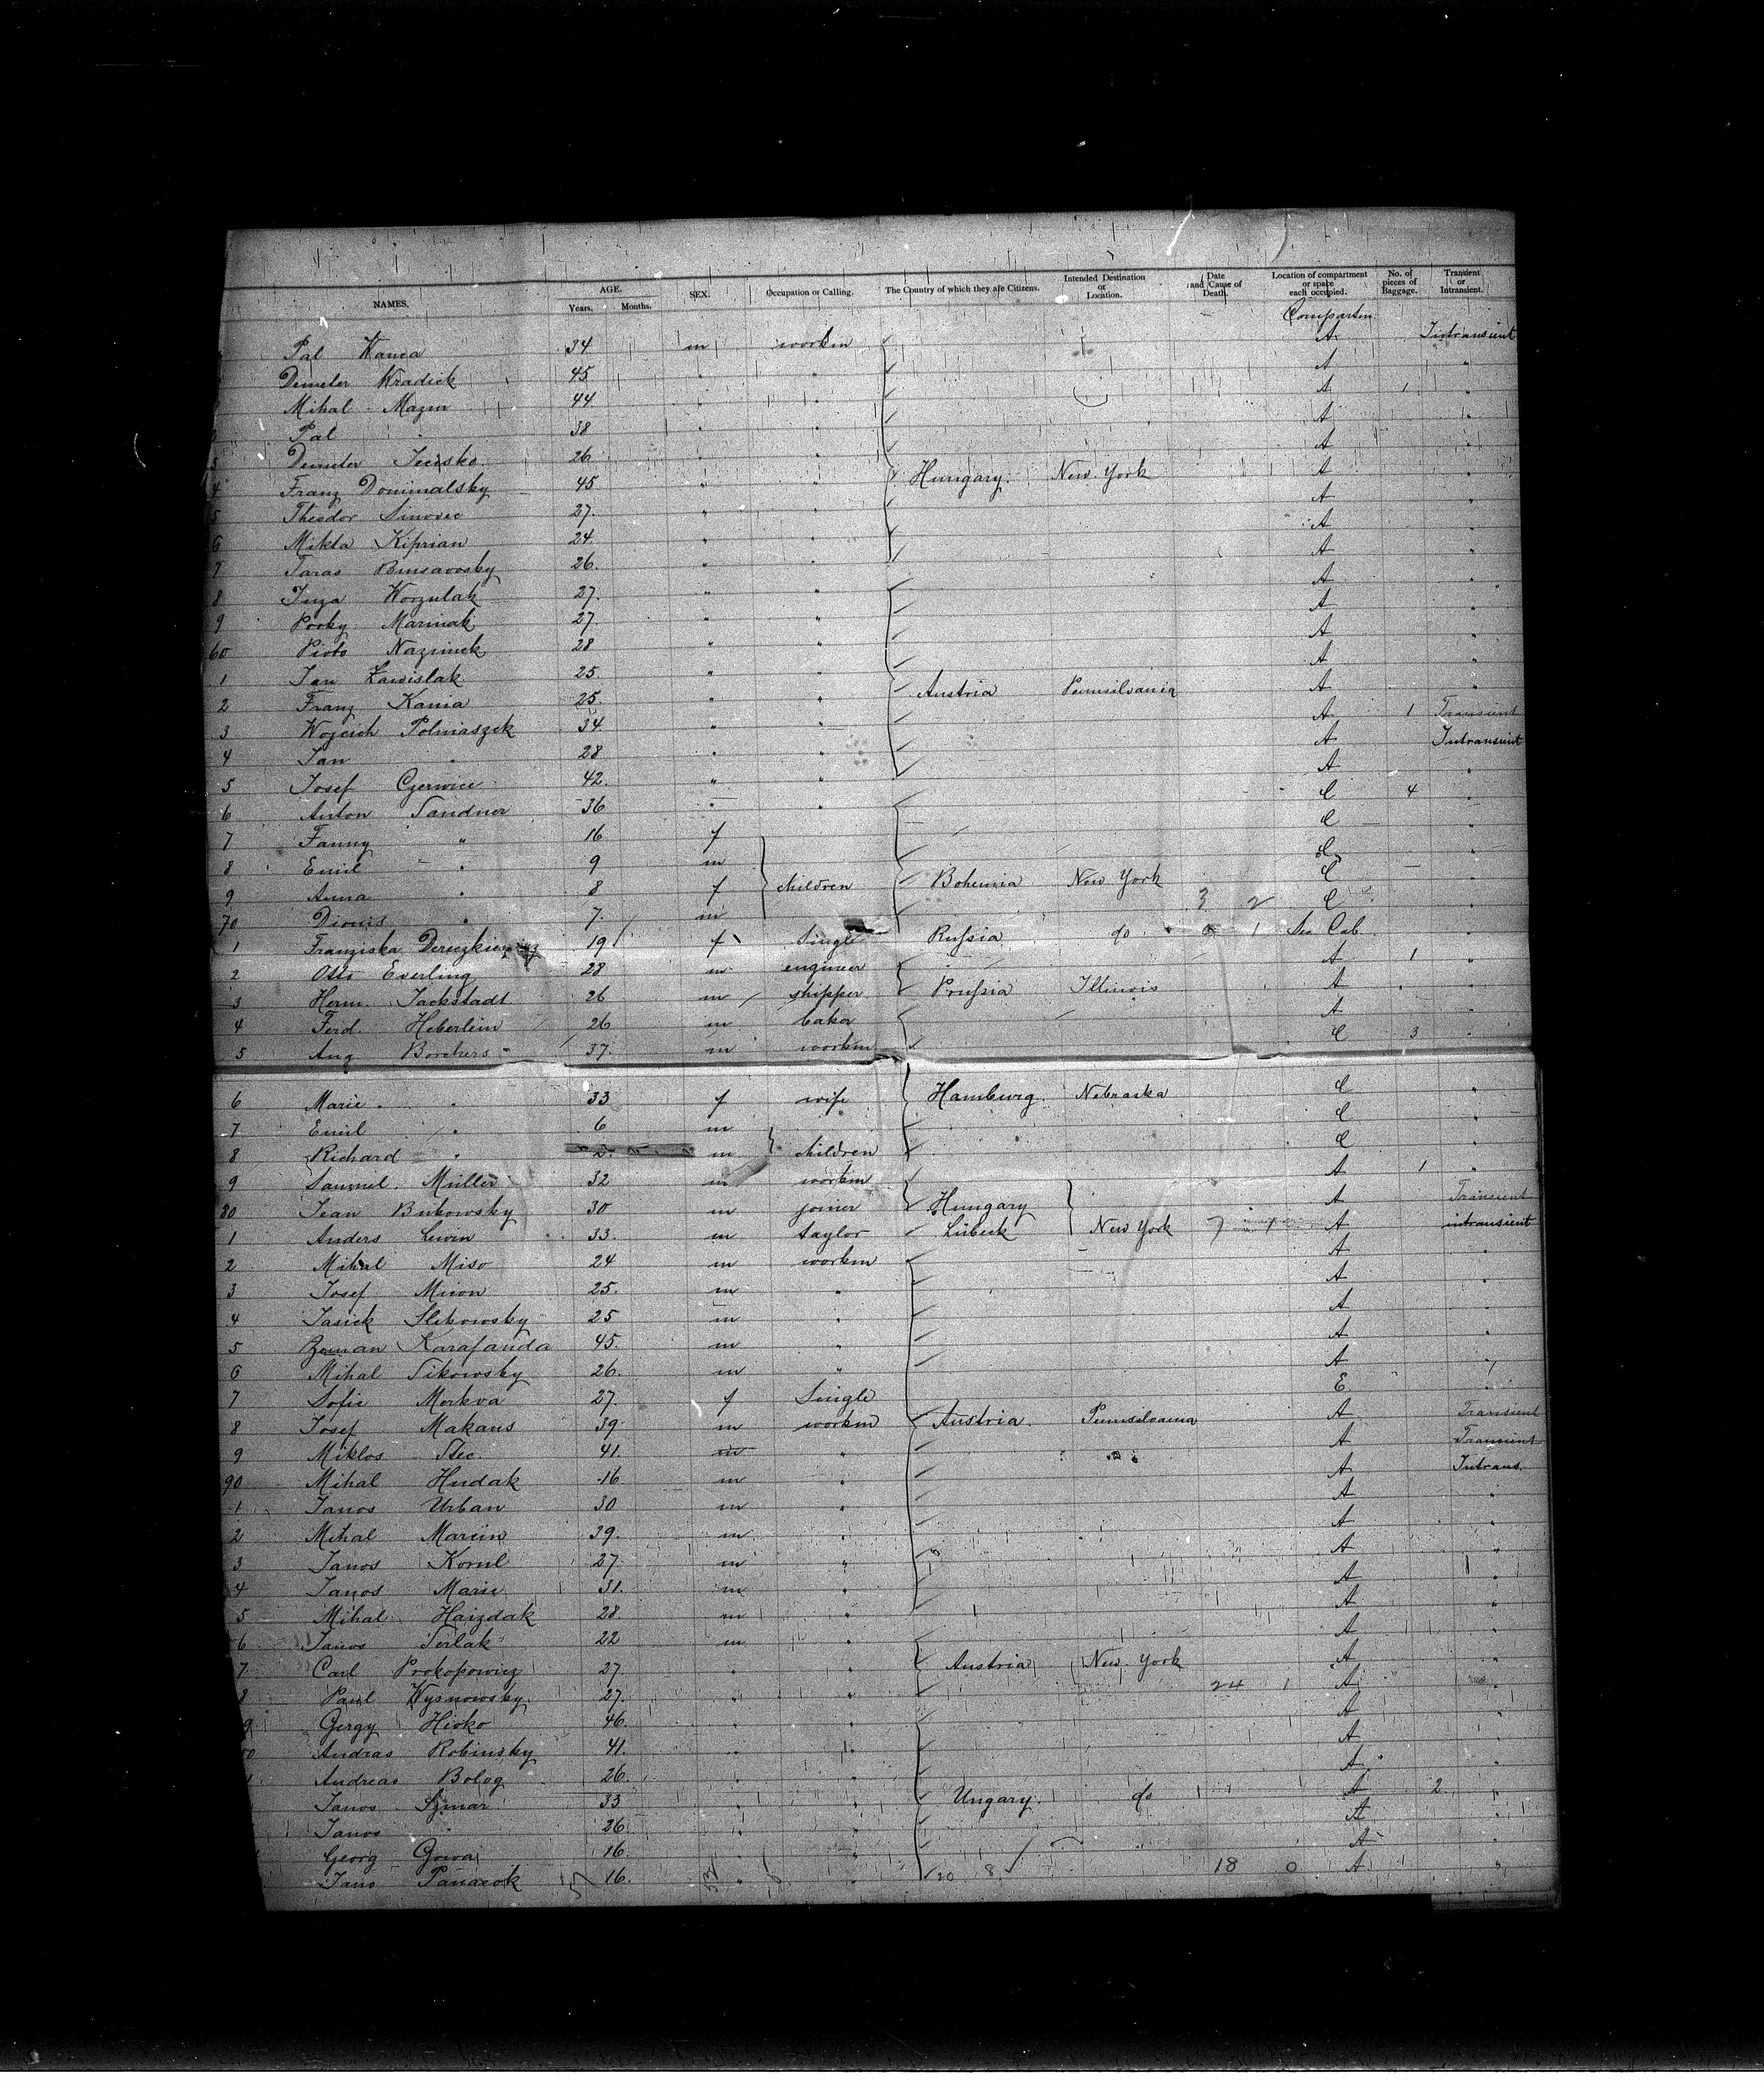 NAMES. AGE. Years, Months. SEX. Occupation or Calling. The Country of which they are Citizens. Intended Destination or Location. Date and Cause of Death. Location of compartment or space each occupied. No. of pieces of Baggage. Transient or Intransient.
Compartm
Pal Kania 34 m workm A Intransient
Demeter Kradick 45 " " A "
Mihal Mazur 44 " " A 1 "
Pal " 38 " " A "
3 Demeter 26 " " A "
4 Franz Dominalsky 45 " " Hungary New York A "
5 Theodor Sinovec 27 " " A "
6 Mikla Kiprian 24 " " A "
7 Taras 26 " " A "
8 Worzulak 27 " " A "
9 Marinak 27 " " A "
60 Piotr Nazimek 28 " " A "
1 Jan Lawislak 25 " " A "
2 Franz Kania 25 " " Austria Pennsilvania A "
3 Wojcich Polniaszek 34 " " A 1 Transient
4 Jan " 28 " " A Intransient
5 Josef Czerwice 42 " " A "
6 Anton Sandner 36 " " C 4 "
7 Fanny " 16 f C "
8 Emil " 9 m C "
9 Anna " 8 f children Bohemia New York C "
70 Dionis " 7 m 3 2 C "
1 Franziska 19 f Single Russia do 0 1 Sec Cab "
2 Otto Everling 28 m engineer A 1 "
3 Herm. Jackstadt 26 m shipper Prussia Illinois A "
4 Ferd. Heberlein 26 m baker A "
5 Aug Borchers 37 m workm C 3 "
6 Marie " 33 f wife Hamburg Nebraska C "
7 Emil " 6 m C "
8 Richard " m children C "
9 Samuel Müller 32 m workm A 1 "
80 Jean Bukowsky 30 m joiner Hungary A Transient
1 Anders Lewin 33 m taylor Lübeck New York 7 1 A intransient
2 Mihal Miso 24 m workm A "
3 Josef Miron 25 m " A "
4 Jasick Slikowsky 25 m " A "
5 Karafanda 45 m " A "
6 Mihal Sikowsky 26 m " A "
7 Sofie Merkva 27 f Single E "
8 Josef Makans 39 m workm Austria Pennsilvania A Transient
9 Miklos Stec 41 m " A Transient
90 Mihal Hudak 16 m " A Intrans.
1 Janos Urban 30 m " A "
2 Mihal Marcin 39 m " A "
3 Janos Kornl 27 m " A "
4 Janos Marie 31 m " A "
5 Mihal Haizdak 28 m " A "
6 Janos Serlak 22 m " A "
7 Carl Prokopowicz 27 " " Austria New York A "
8 Paul Wysnowsky 27 " " 24 1 A "
9 Gergy Hisko 46 " " A "
Andras Robinsky 41 " " A "
Andreas Bolog 26 " " A "
Janos Szmar 33 " " Ungary do A 2 "
Janos " 26 " " A "
Georg Gowa 16 " " A "
Jano Panacok 16 " " 20 8 18 0 A "